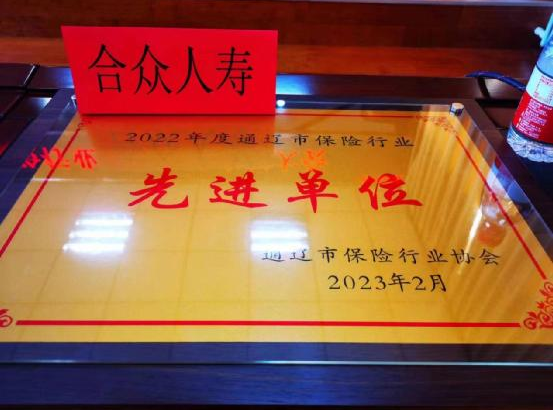 合众人寿
2022年度通辽市保险行业
先进单位
通辽市保险行业协会
2023年2月